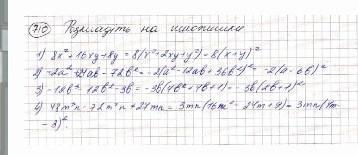 710 Розкладіть на множники
1) 8x²+16xy+8y = 8(x²+2xy+y²) = 8(x+y)²
2) -2a²+24ab-72b² = -2(a²-12ab+36b²) = -2(a-6b)²
3) -12b³-12b²-3b = -3b(4b²+4b+1) = -3b(2b+1)²
4) 48m³n-72m²n+27mn = 3mn(16m²-24m+9) = 3mn(4m-
-3)².